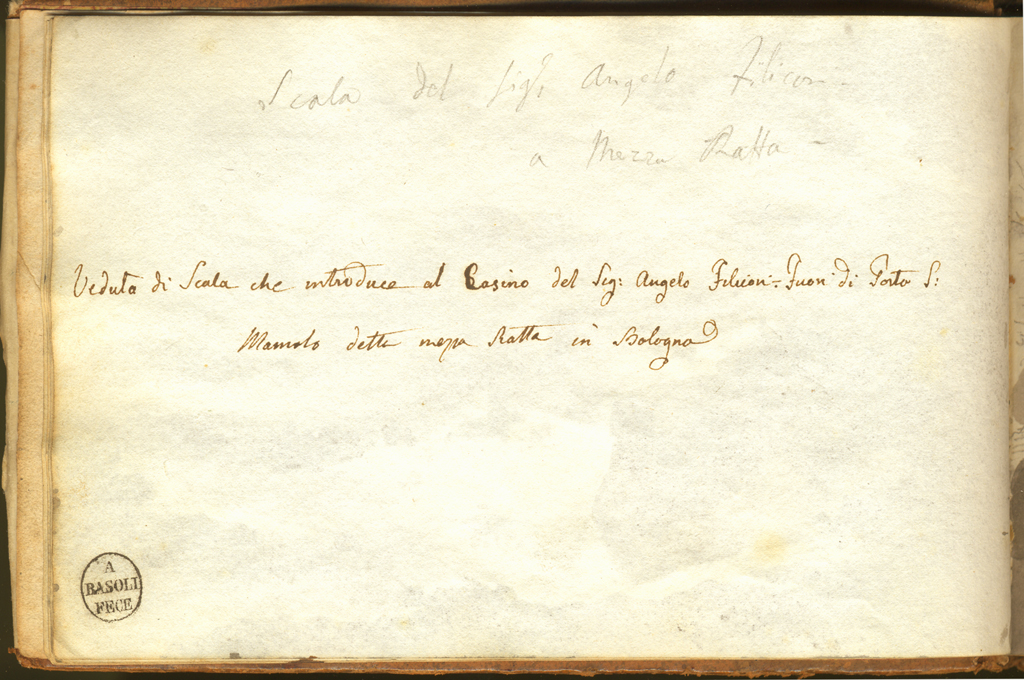 Scala del Sigr. Angelo Filicori -
a Mezza Ratta -
Veduta di Scala che introduce al Casino del Sig: Angelo Filicori - Fuori di Porta S:
Mamolo detto mezza Ratta in Bologna
A
BASOLI
FECE